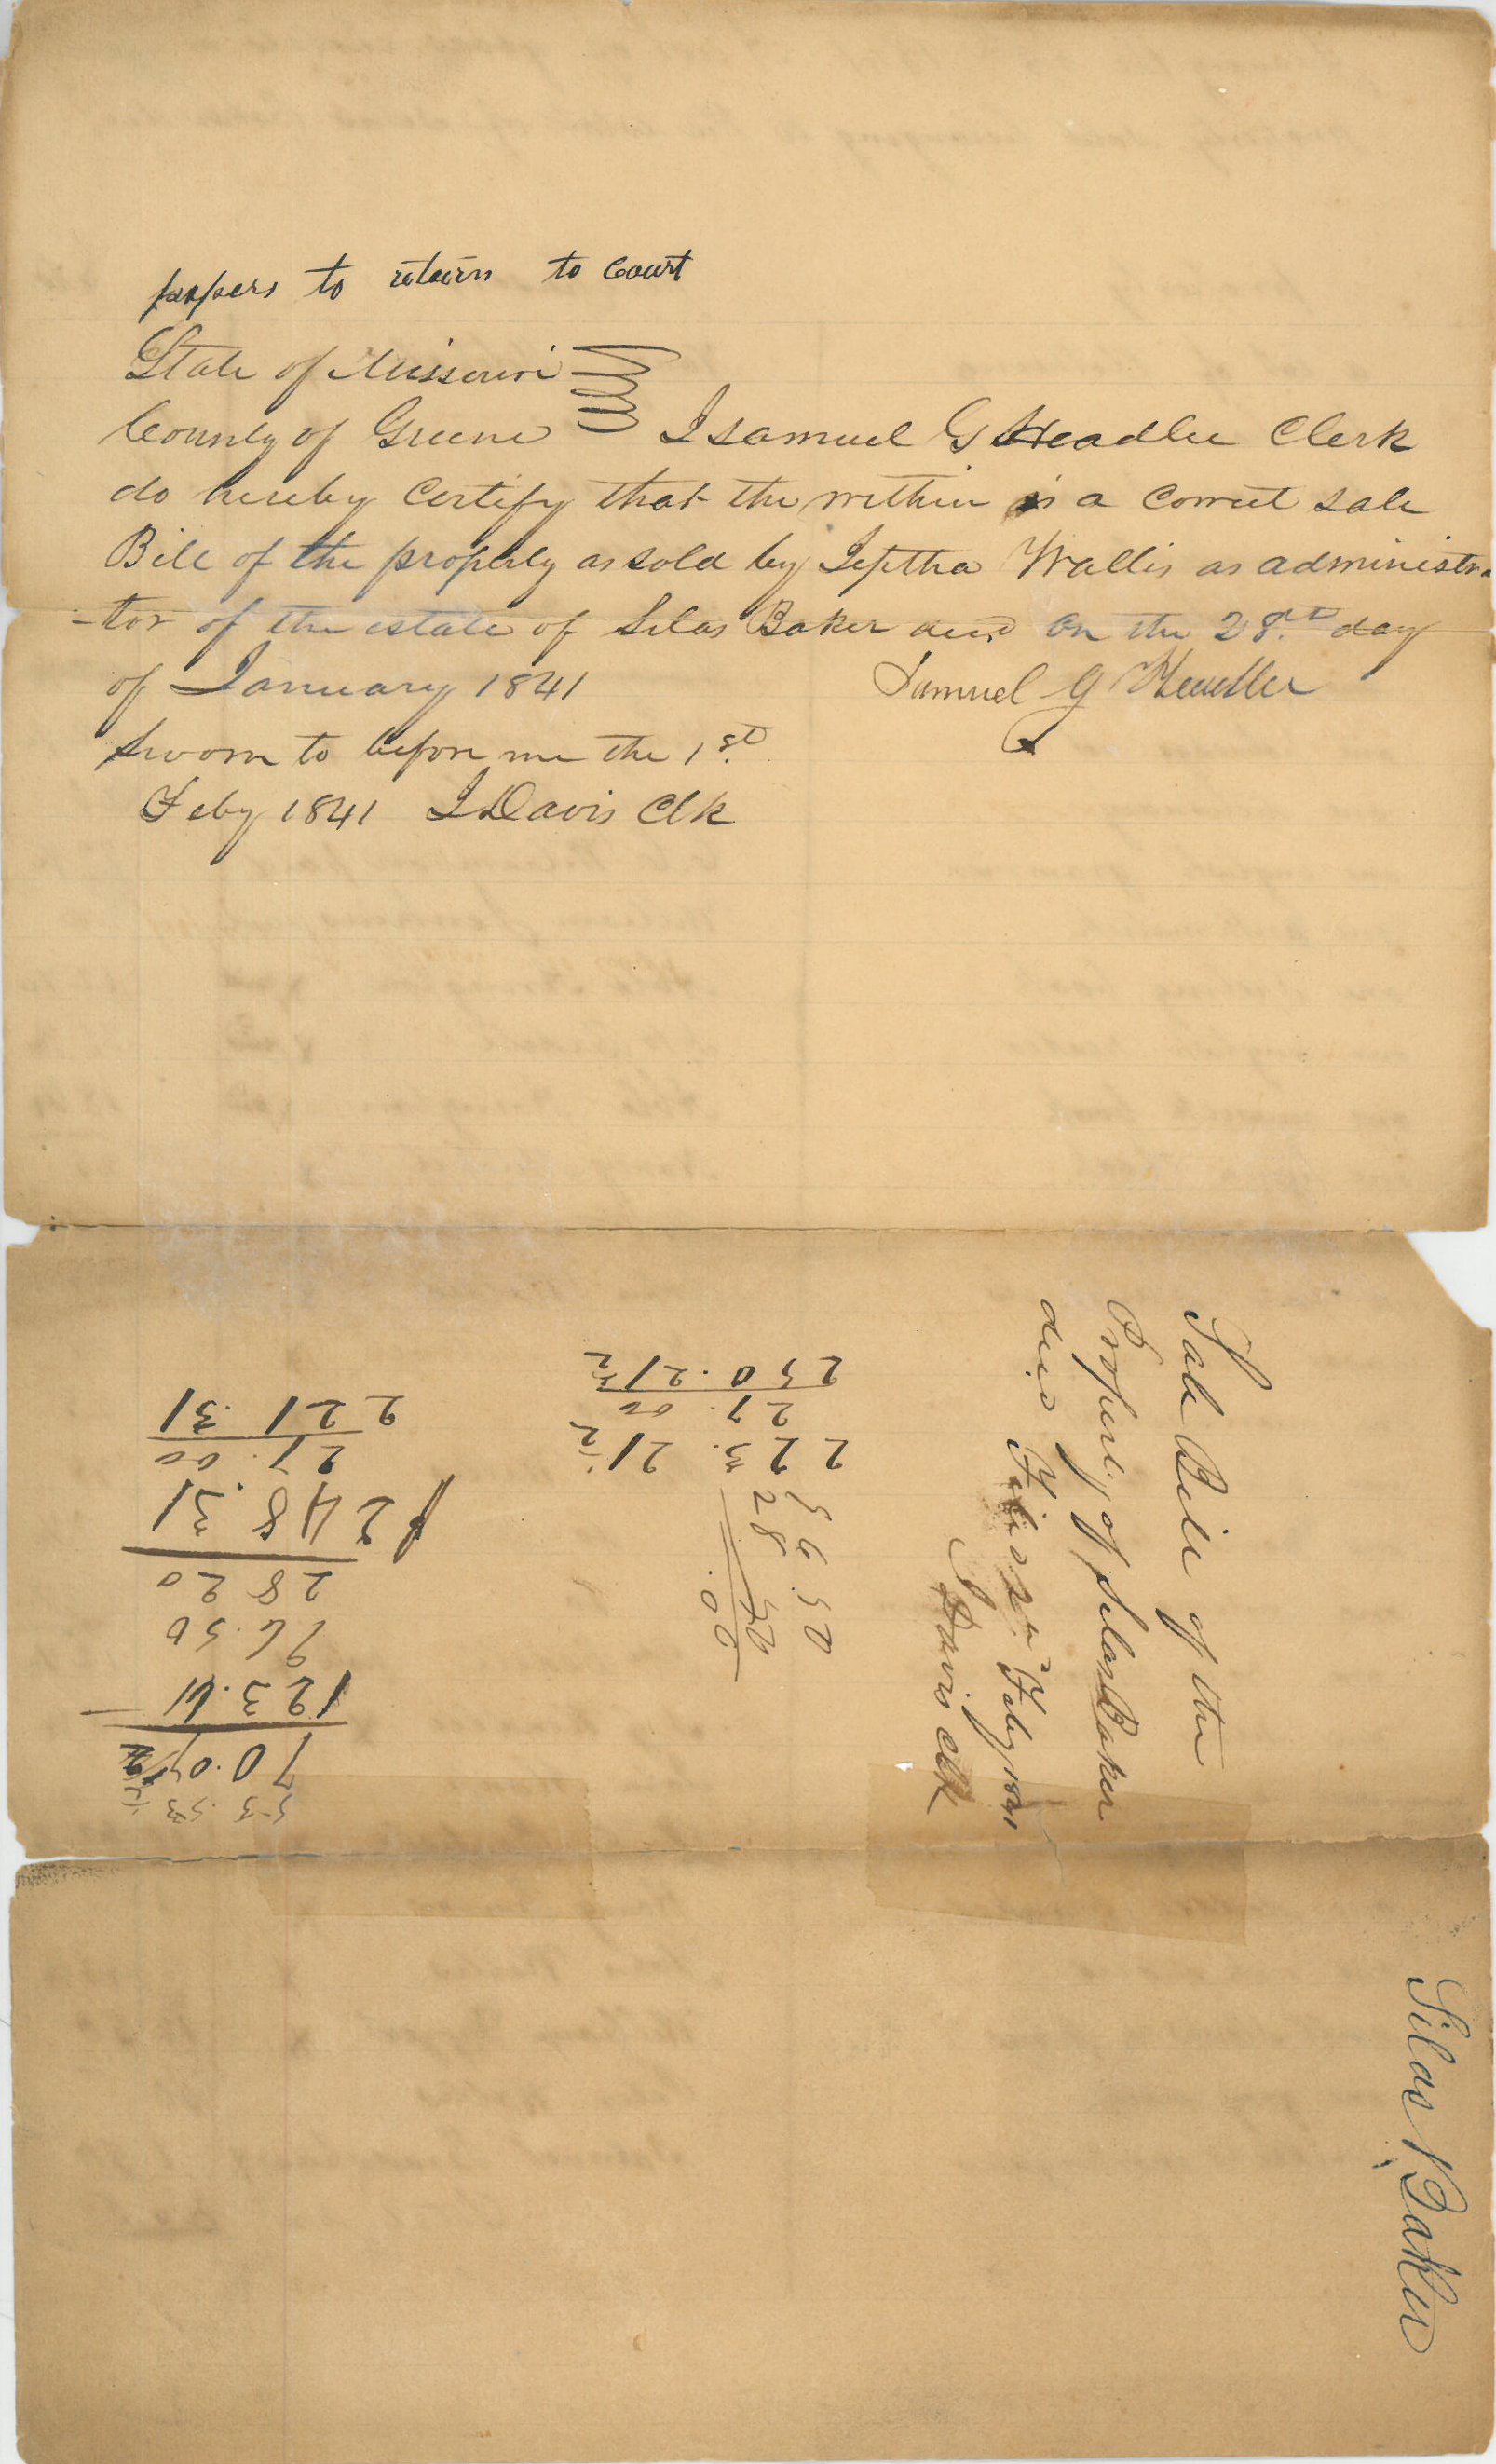 papers to return to Court
State of Missouri
County of Greene I Samuel G Headlee Clerk
do hereby Certify that the within is a Correct sale
Bill of the property as sold by Jeptha Wallis as administra
-tor of the estate of Silas Baker decd on the 28th day
of January 1841 Samuel G Headlee
Sworn to before me the 1st
Feby 1841 J Davis Clk
Sale Bill of the
Property of Silas Baker
decd Filed Feby 1841
J Davis Clk
53.53 1/2
70.0
123.61
96.50
28 20
$248.31
27.00
221.31
56.50
28 50
.00
223.21 1/2
27.00
250.21 1/2
Silas Baker